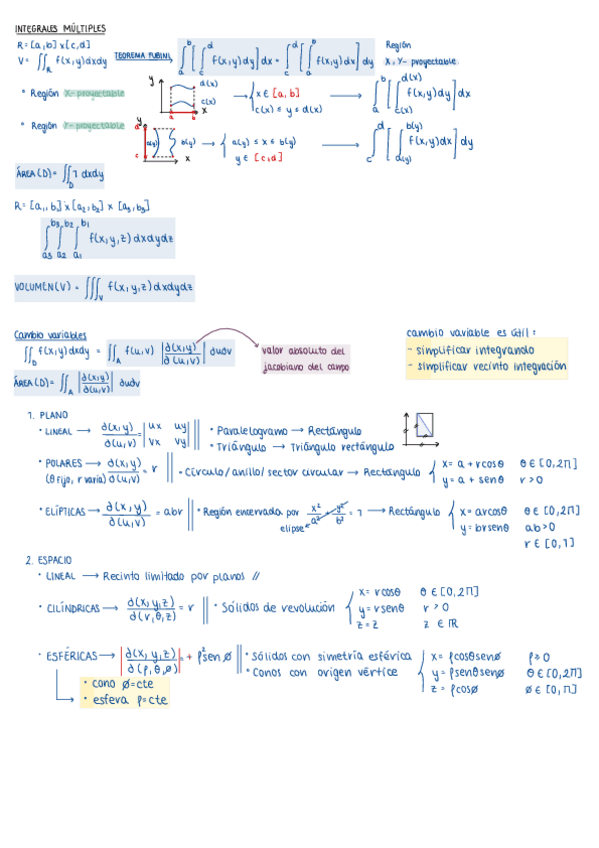 INTEGRALES MÚLTIPLES
R = [a,b] x [c,d]
V = ∬_R f(x,y)dxdy TEOREMA FUBINI → ∫_a^b [∫_c^d f(x,y)dy] dx = ∫_c^d [∫_a^b f(x,y)dx] dy Región X,Y- proyectable
• Región X- proyectable y d(x) c(x) a b x → { x ∈ [a,b] c(x) ≤ y ≤ d(x) → ∫_a^b [∫_{c(x)}^{d(x)} f(x,y)dy] dx
• Región Y- proyectable y a(y) b(y) x → { a(y) ≤ x ≤ b(y) y ∈ [c,d] → ∫_c^d [∫_{a(y)}^{b(y)} f(x,y)dx] dy
ÁREA(D) = ∬_D 1 dxdy
R = [a₁,b₁] x [a₂,b₂] x [a₃,b₃]
∫_{a3}^{b3} ∫_{a2}^{b2} ∫_{a1}^{b1} f(x,y,z) dxdydz
VOLUMEN(V) = ∭_V f(x,y,z)dxdydz
Cambio variables
∬_D f(x,y)dxdy = ∬_A f(u,v) |∂(x,y)/∂(u,v)| dudv
valor absoluto del
jacobiano del campo
cambio variable es útil:
- simplificar integrando
- simplificar recinto integración
ÁREA(D) = ∬_A |∂(x,y)/∂(u,v)| dudv
1. PLANO
• LINEAL → ∂(x,y)/∂(u,v) = |ux uy vx vy| || • Paralelogramo → Rectángulo
• Triángulo → Triángulo rectángulo
• POLARES → ∂(x,y)/∂(u,v) = r || • Círculo/anillo/sector circular → Rectángulo { x = a + rcosθ θ ∈ [0,2π]
(θ fijo, r varia) y = a + senθ r > 0
• ELÍPTICAS → ∂(x,y)/∂(u,v) = abr || • Región encerrada por x²/a² + y²/b² = 1 → Rectángulo { x = arcosθ θ ∈ [0,2π]
elipse y = brsenθ ab>0
r ∈ [0,1]
2. ESPACIO
• LINEAL → Recinto limitado por planos //
• CILÍNDRICAS → ∂(x,y,z)/∂(r,θ,z) = r || • Sólidos de revolución { x = rcosθ θ ∈ [0,2π]
y = rsenθ r > 0
z = z z ∈ IR
• ESFÉRICAS → |∂(x,y,z)/∂(ρ,θ,ø)| = + ρ²senø || • Sólidos con simetría esférica { x = ρcosθsenø ρ ≥ 0
• Conos con origen vértice y = ρsenθsenø θ ∈ [0,2π]
z = ρcosø ø ∈ [0,π]
• cono ø=cte
• esfera ρ=cte